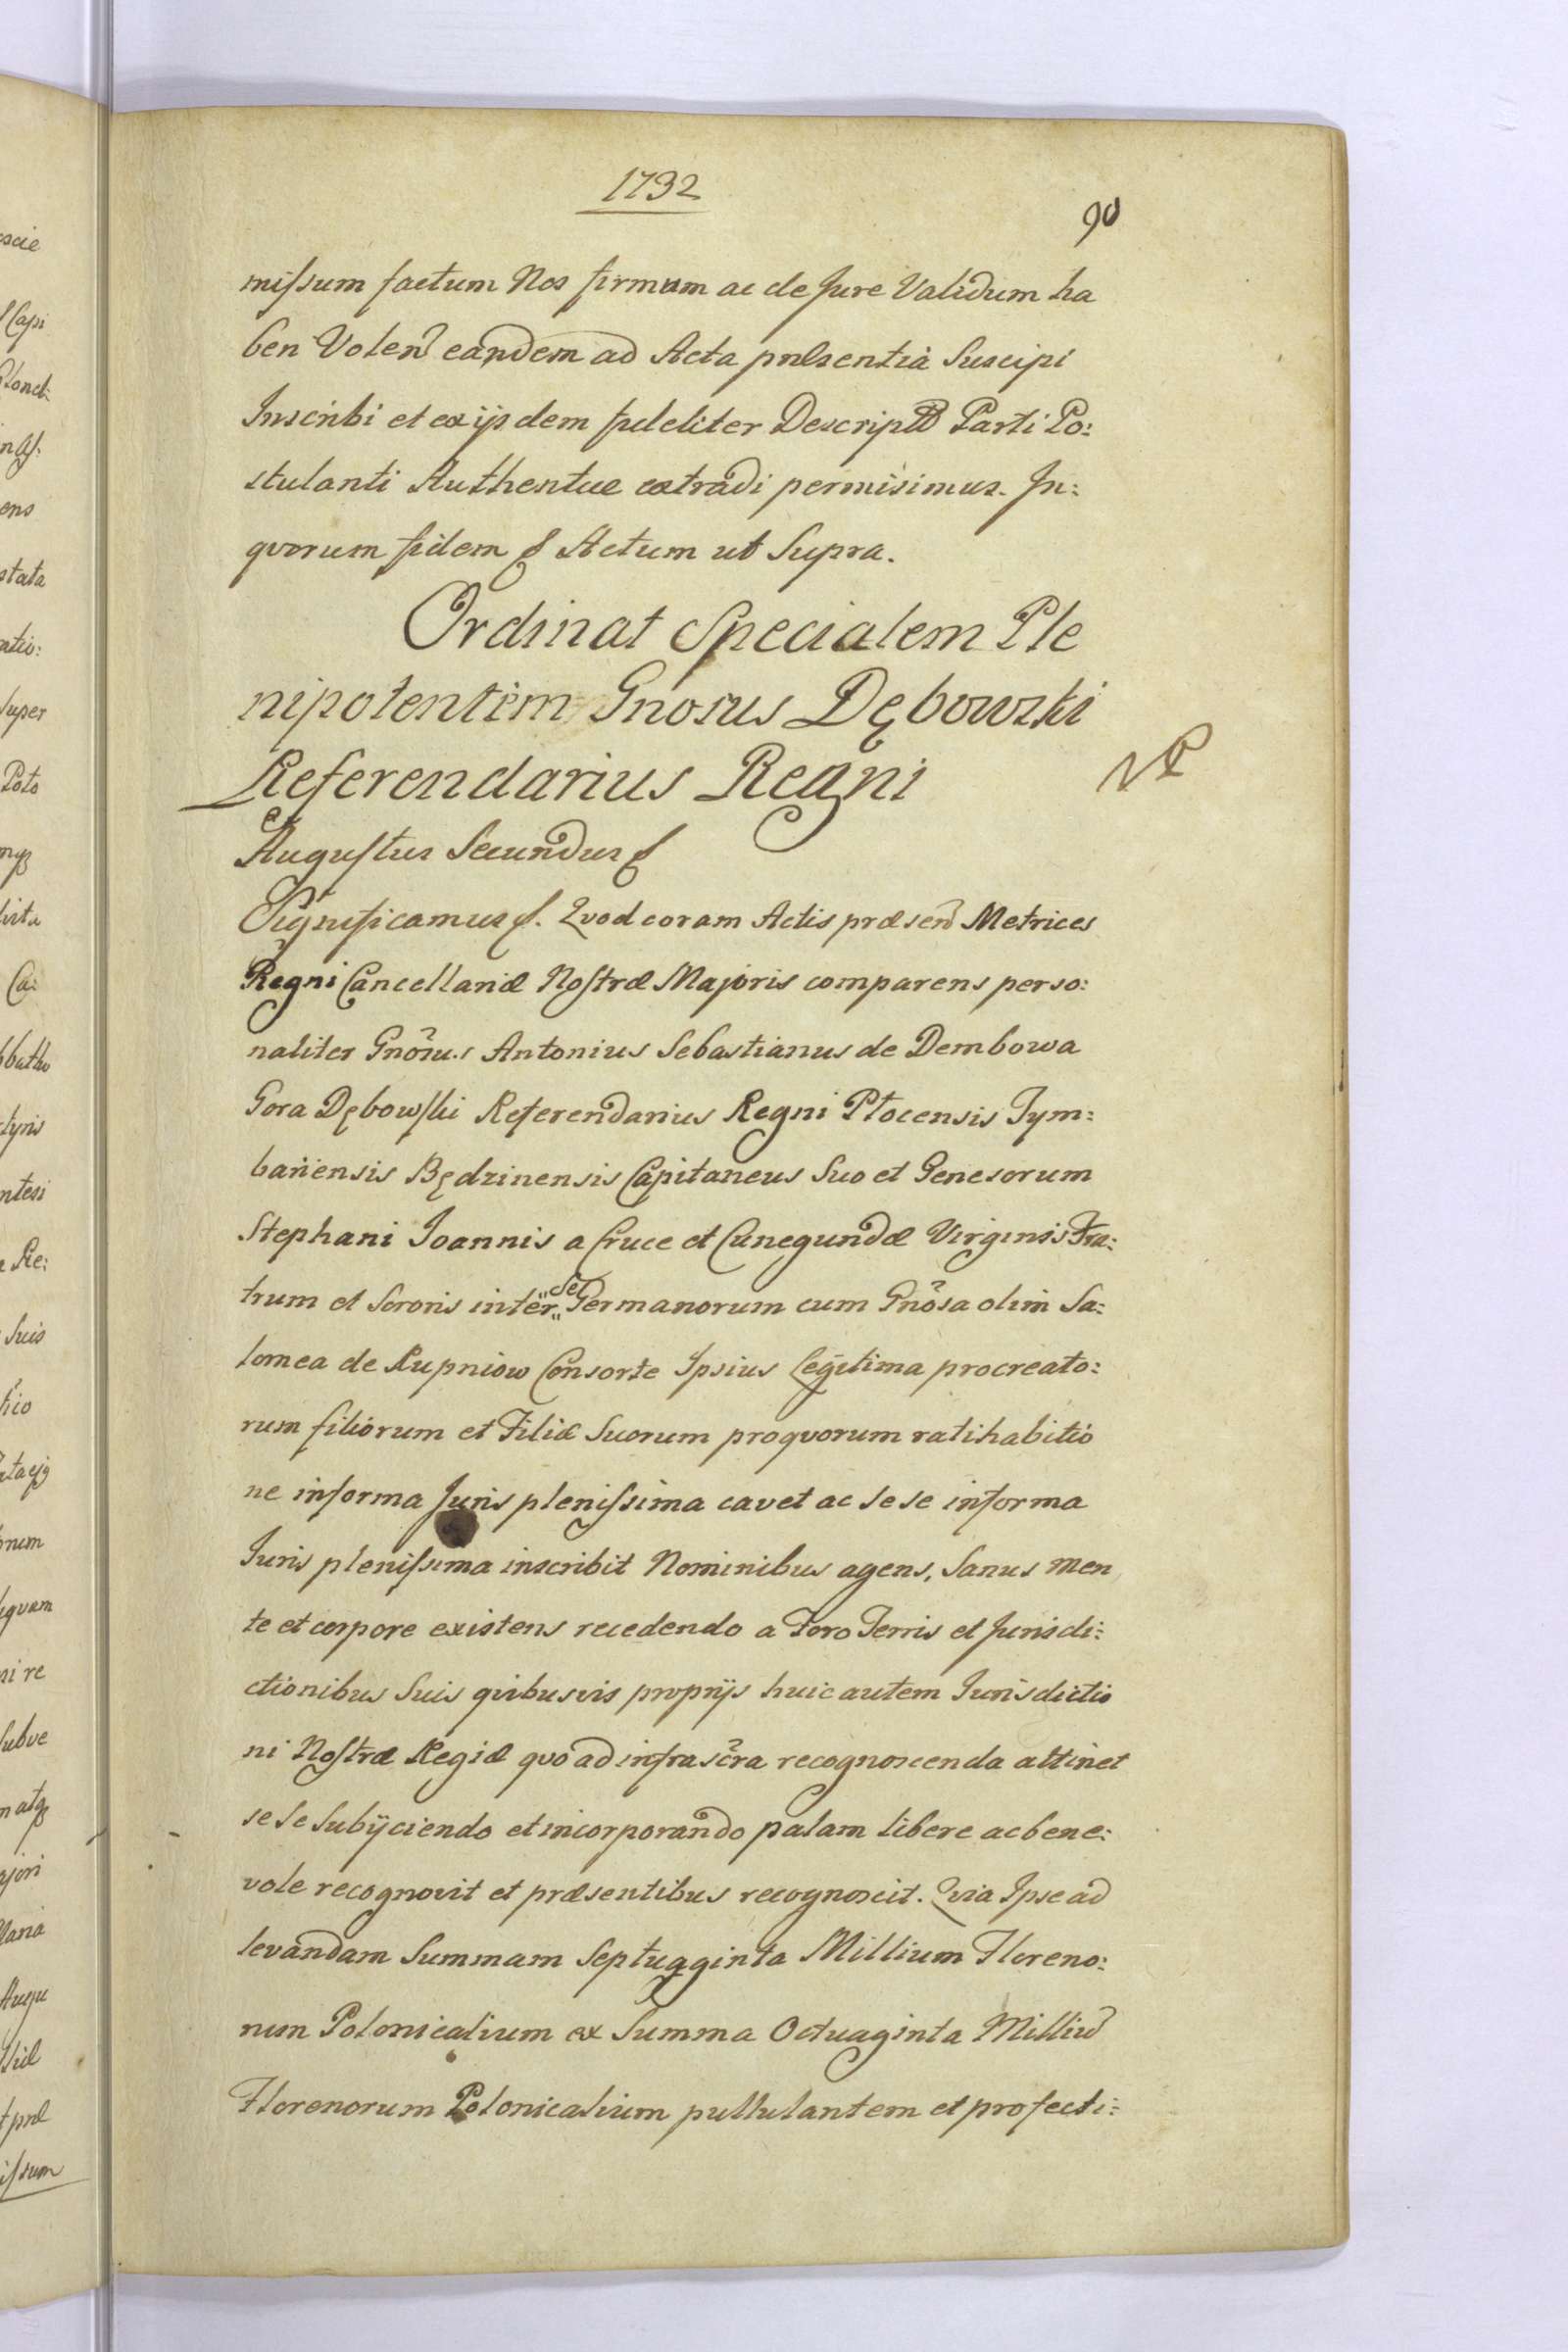 1732
90
missum factum Nos firmum ac de Jure Validum ha
ben Volen eandem ad Acta pnlsentia Suscipi
Inscribi et ex ijsdem fideliter Descriptt Parti Po:
stulanti Authentice extradi permisimus. In:
quorum fidem & Actum ut Supra.
Ordinat Specialem Ple
nipotentem Gnosus Dębowski
Referendarius Regni
Augustus Secundus &
Significamus &. Quod coram Actis præsen Metrices
Regni Cancellariæ Nostræ Majoris comparens perso:
naliter Gnosus Antonius Sebastianus de Dembowa
Gora Dębowski Referendarius Regni Płocensis Tym:
bariensis Będzinensis Capitaneus Suo et Genesorum
Stephani Joannis a Cruce et Cunegundæ Virginis Fra:
trum et Sororis inter se Germanorum cum Gnosa olim Sa:
lomea de Rupniow Consorte Ipsius Legitima procreato:
rum filiorum et Filiæ Suorum pro quorum ratihabitio
ne in forma Juris plenissima cavet ac se se in forma
Juris plenissima inscribit Nominibus agens, Sanus men
te et corpore existens recedendo a Foro Terris et Jurisdi:
ctionibus Suis quibusvis proprijs huic autem Jurisdictio
ni Nostræ Regiæ quo ad infrascra recognoscenda attinet
se se Subijciendo et incorporando palam libere ac bene:
vole recognovit et præsentibus recognoscit. Quia Ipse ad
levandam Summam Septuagginta Millium Floreno:
rum Polonicalium ex Summa Octuaginta Milliu
Florenorum Polonicalium pullulantem et profecti: